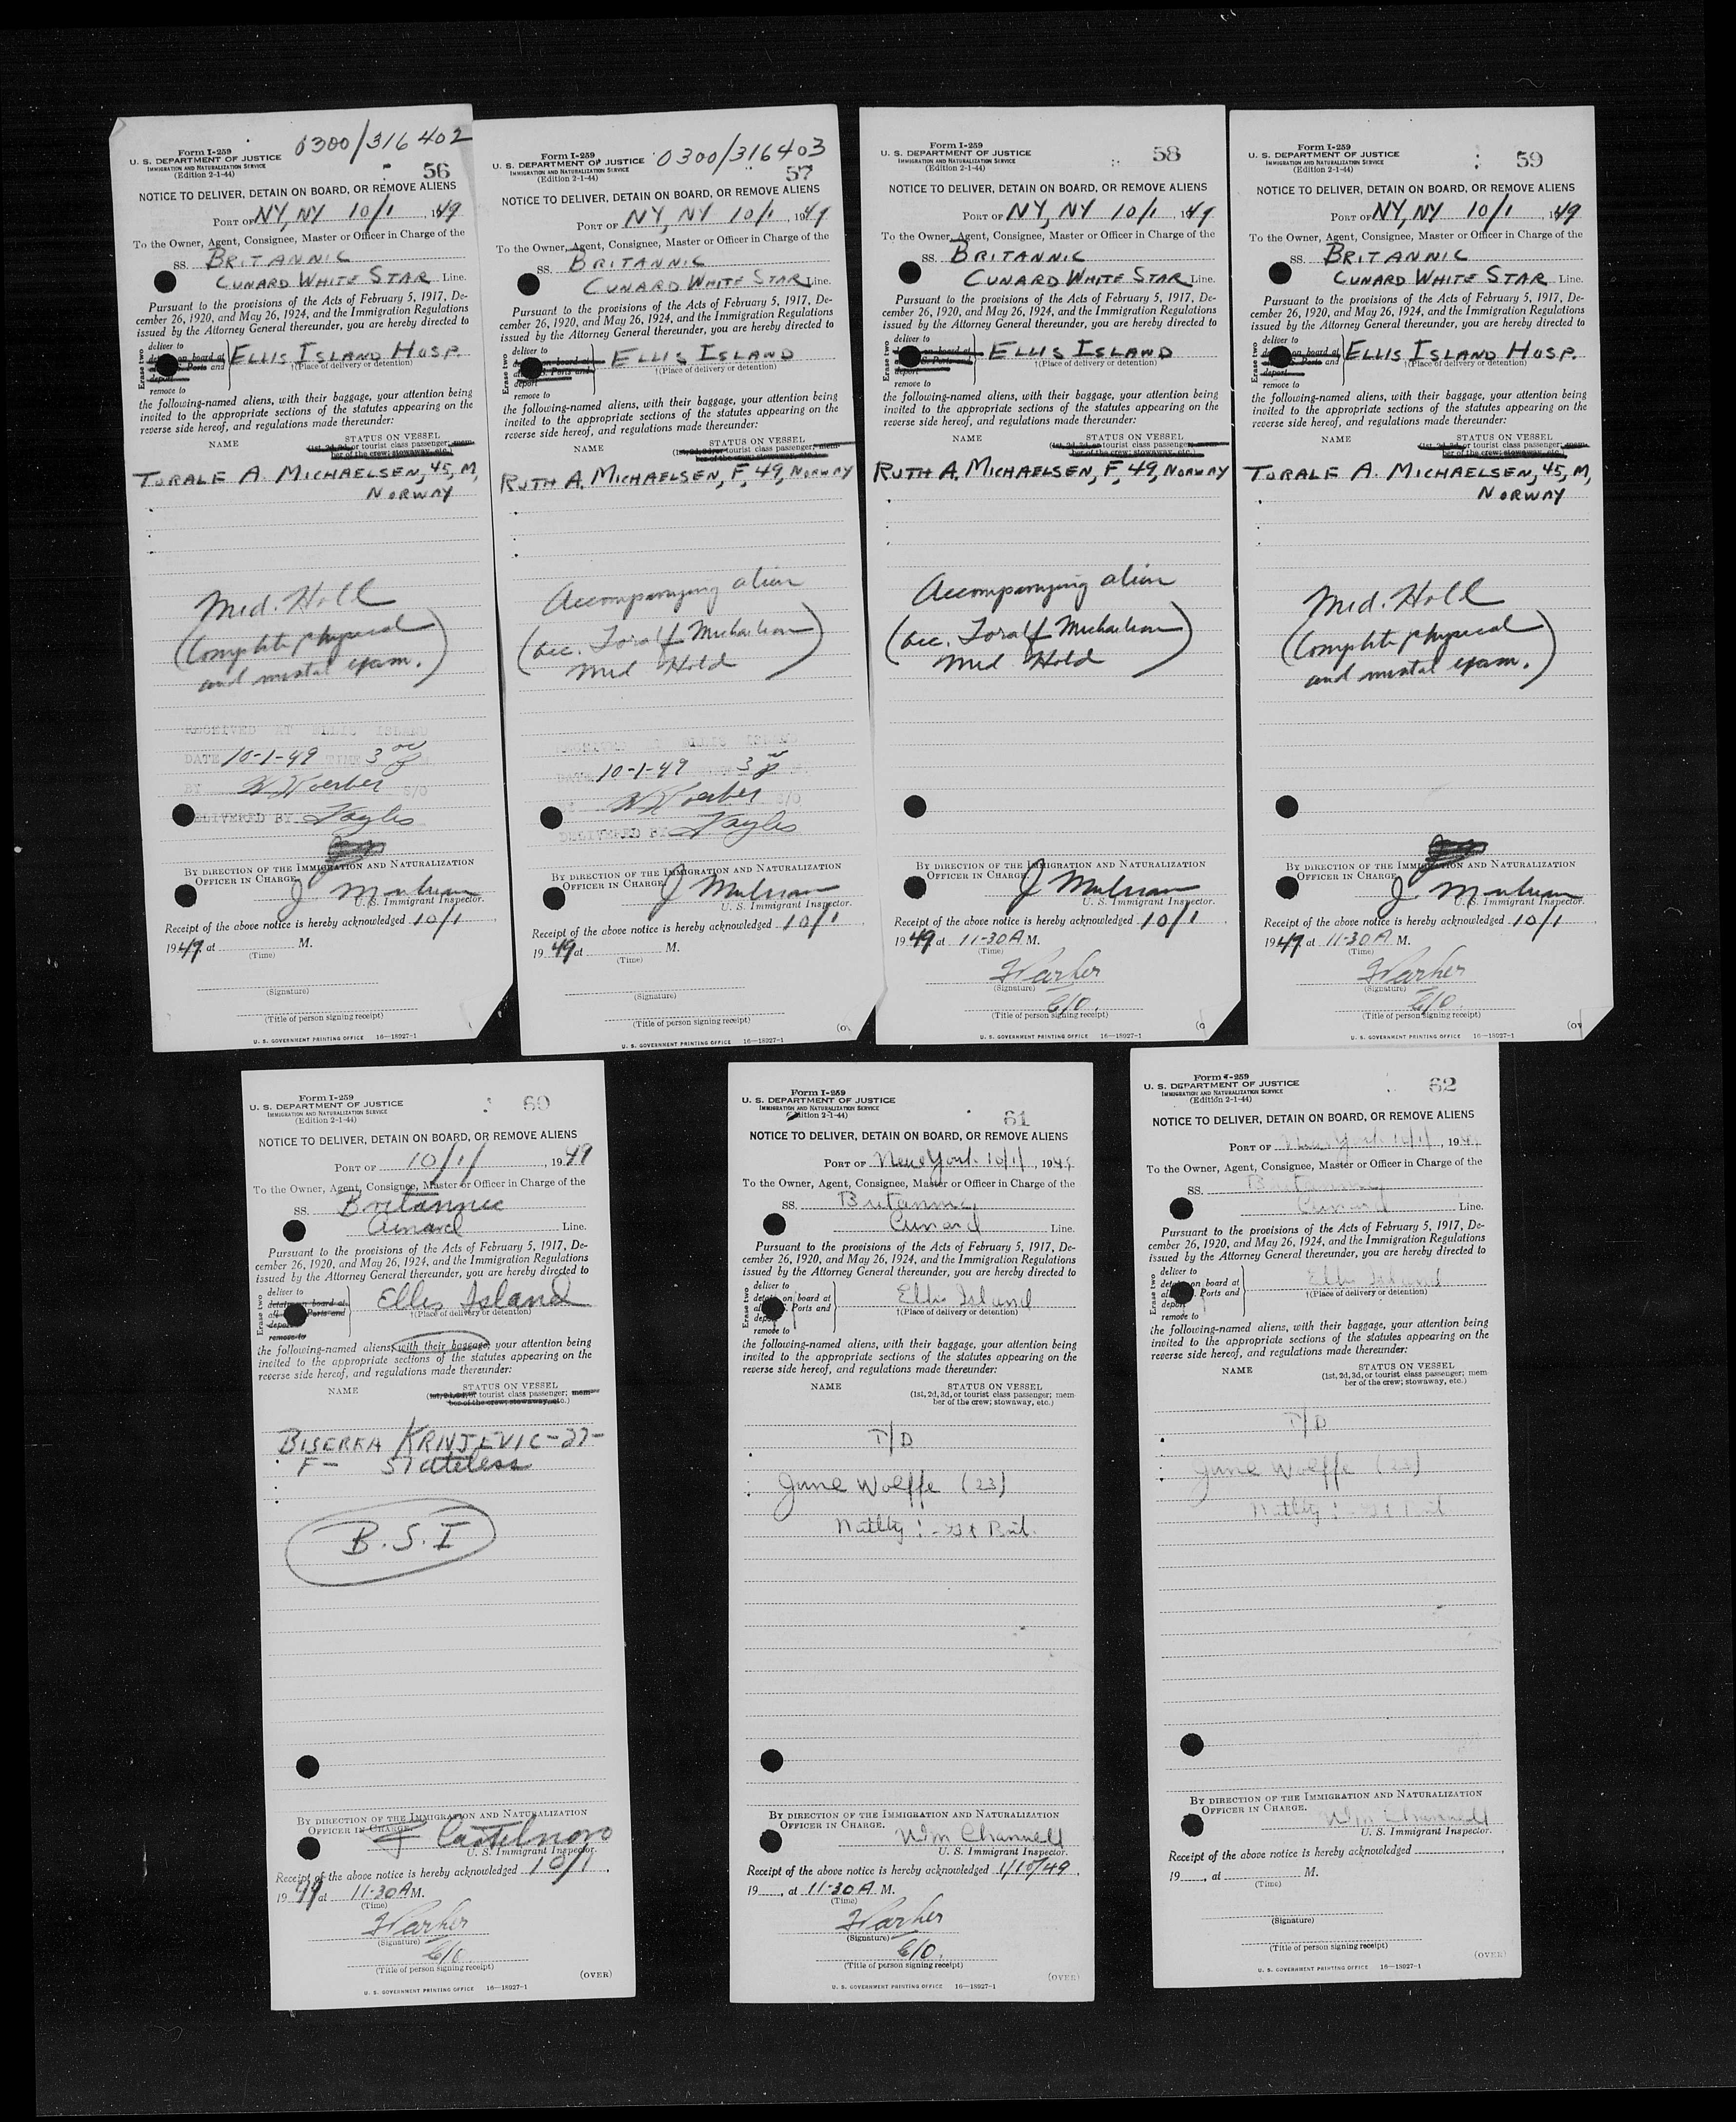 0300/316402
Form I-259
U. S. DEPARTMENT OF JUSTICE
IMMIGRATION AND NATURALIZATION SERVICE
(Edition 2-1-44)
56
NOTICE TO DELIVER, DETAIN ON BOARD, OR REMOVE ALIENS
PORT OF NY, NY 10/1, 1949
To the Owner, Agent, Consignee, Master or Officer in Charge of the
SS. BRITANNIC
CUNARD WHITE STAR Line.
Pursuant to the provisions of the Acts of February 5, 1917, De-
cember 26, 1920, and May 26, 1924, and the Immigration Regulations
issued by the Attorney General thereunder, you are hereby directed to
Erase two
deliver to
on board at
S. Ports and
deport
remove to
ELLIS ISLAND HOSP.
†(Place of delivery or detention)
the following-named aliens, with their baggage, your attention being
invited to the appropriate sections of the statutes appearing on the
reverse side hereof, and regulations made thereunder:
NAME
STATUS ON VESSEL
(1st, 2d, 3d, or tourist class passenger; mem-
ber of the crew; stowaway, etc.)
TORALF A. MICHAELSEN, 45, M,
NORWAY
Med. Hold
(Complete physical
and mental exam.)
RECEIVED AT ELLIS ISLAND
DATE 10-1-49 TIME 3 00 P M.
BY W Koerber S/O
DELIVERED BY
BY DIRECTION OF THE IMMIGRATION AND NATURALIZATION
OFFICER IN CHARGE.
U. S. Immigrant Inspector.
Receipt of the above notice is hereby acknowledged 10/1
1949, at M.
(Time)
(Signature)
(Title of person signing receipt)
U. S. GOVERNMENT PRINTING OFFICE 16—18927-1
0300/316403
Form I-259
U. S. DEPARTMENT OF JUSTICE
IMMIGRATION AND NATURALIZATION SERVICE
(Edition 2-1-44)
57
NOTICE TO DELIVER, DETAIN ON BOARD, OR REMOVE ALIENS
PORT OF NY, NY 10/1, 1949
To the Owner, Agent, Consignee, Master or Officer in Charge of the
SS. BRITANNIC
CUNARD WHITE STAR Line.
Pursuant to the provisions of the Acts of February 5, 1917, De-
cember 26, 1920, and May 26, 1924, and the Immigration Regulations
issued by the Attorney General thereunder, you are hereby directed to
Erase two
deliver to
on board at
S. Ports and
deport
remove to
ELLIS ISLAND
†(Place of delivery or detention)
the following-named aliens, with their baggage, your attention being
invited to the appropriate sections of the statutes appearing on the
reverse side hereof, and regulations made thereunder:
NAME
STATUS ON VESSEL
(1st, 2d, 3d, or tourist class passenger; mem-
ber of the crew; stowaway, etc.)
RUTH A. MICHAELSEN, F, 49, NORWAY
Accompanying alien
(Acc. Toralf Michaelsen
Med Hold)
RECEIVED AT ELLIS ISLAND
DATE 10-1-49 3 P M.
W Koerber S/O
DELIVERED BY
BY DIRECTION OF THE IMMIGRATION AND NATURALIZATION
OFFICER IN CHARGE.
U. S. Immigrant Inspector.
Receipt of the above notice is hereby acknowledged 10/1
1949, at M.
(Time)
(Signature)
(Title of person signing receipt)
U. S. GOVERNMENT PRINTING OFFICE 16—18927-1
Form I-259
U. S. DEPARTMENT OF JUSTICE
IMMIGRATION AND NATURALIZATION SERVICE
(Edition 2-1-44)
58
NOTICE TO DELIVER, DETAIN ON BOARD, OR REMOVE ALIENS
PORT OF NY, NY 10/1, 1949
To the Owner, Agent, Consignee, Master or Officer in Charge of the
SS. BRITANNIC
CUNARD WHITE STAR Line.
Pursuant to the provisions of the Acts of February 5, 1917, De-
cember 26, 1920, and May 26, 1924, and the Immigration Regulations
issued by the Attorney General thereunder, you are hereby directed to
Erase two
deliver to
on board at
S. Ports and
deport
remove to
ELLIS ISLAND
†(Place of delivery or detention)
the following-named aliens, with their baggage, your attention being
invited to the appropriate sections of the statutes appearing on the
reverse side hereof, and regulations made thereunder:
NAME
STATUS ON VESSEL
(1st, 2d, 3d, or tourist class passenger; mem-
ber of the crew; stowaway, etc.)
RUTH A. MICHAELSEN, F, 49, NORWAY
Accompanying alien
(Acc. Toralf Michaelsen
Med Hold)
BY DIRECTION OF THE IMMIGRATION AND NATURALIZATION
OFFICER IN CHARGE.
U. S. Immigrant Inspector.
Receipt of the above notice is hereby acknowledged 10/1
1949 at 11-30 A M.
(Time)
Parker
(Signature)
C/O.
(Title of person signing receipt)
U. S. GOVERNMENT PRINTING OFFICE 16—18927-1
Form I-259
U. S. DEPARTMENT OF JUSTICE
IMMIGRATION AND NATURALIZATION SERVICE
(Edition 2-1-44)
59
NOTICE TO DELIVER, DETAIN ON BOARD, OR REMOVE ALIENS
PORT OF NY, NY 10/1, 1949
To the Owner, Agent, Consignee, Master or Officer in Charge of the
SS. BRITANNIC
CUNARD WHITE STAR Line.
Pursuant to the provisions of the Acts of February 5, 1917, De-
cember 26, 1920, and May 26, 1924, and the Immigration Regulations
issued by the Attorney General thereunder, you are hereby directed to
Erase two
deliver to
on board at
S. Ports and
deport
remove to
ELLIS ISLAND HOSP.
†(Place of delivery or detention)
the following-named aliens, with their baggage, your attention being
invited to the appropriate sections of the statutes appearing on the
reverse side hereof, and regulations made thereunder:
NAME
STATUS ON VESSEL
(1st, 2d, 3d, or tourist class passenger; mem-
ber of the crew; stowaway, etc.)
TORALF A. MICHAELSEN, 45, M,
NORWAY
Med. Hold
(Complete physical
and mental exam.)
BY DIRECTION OF THE IMMIGRATION AND NATURALIZATION
OFFICER IN CHARGE.
U. S. Immigrant Inspector.
Receipt of the above notice is hereby acknowledged 10/1
1949, at 11-30 A M.
(Time)
Parker
(Signature)
C/O.
(Title of person signing receipt)
U. S. GOVERNMENT PRINTING OFFICE 16—18927-1
Form I-259
U. S. DEPARTMENT OF JUSTICE
IMMIGRATION AND NATURALIZATION SERVICE
(Edition 2-1-44)
60
NOTICE TO DELIVER, DETAIN ON BOARD, OR REMOVE ALIENS
PORT OF 10/1/, 1949
To the Owner, Agent, Consignee, Master or Officer in Charge of the
SS. Britannic
Cunard Line.
Pursuant to the provisions of the Acts of February 5, 1917, De-
cember 26, 1920, and May 26, 1924, and the Immigration Regulations
issued by the Attorney General thereunder, you are hereby directed to
Erase two
deliver to
detain on board at
all Ports and
deport
remove to
Ellis Island
†(Place of delivery or detention)
the following-named aliens, with their baggage, your attention being
invited to the appropriate sections of the statutes appearing on the
reverse side hereof, and regulations made thereunder:
NAME
STATUS ON VESSEL
(1st, 2d, 3d, or tourist class passenger; mem-
ber of the crew; stowaway, etc.)
BISERKA KRNJEVIC-27-
F- Stateless
B.S.I
BY DIRECTION OF THE IMMIGRATION AND NATURALIZATION
OFFICER IN CHARGE.
Castelnovo
U. S. Immigrant Inspector.
Receipt of the above notice is hereby acknowledged 10/1,
1949 at 11-30 A M.
(Time)
Parker
(Signature)
C/O.
(Title of person signing receipt)
(OVER)
U. S. GOVERNMENT PRINTING OFFICE 16—18927-1
Form I-259
U. S. DEPARTMENT OF JUSTICE
IMMIGRATION AND NATURALIZATION SERVICE
(Edition 2-1-44)
61
NOTICE TO DELIVER, DETAIN ON BOARD, OR REMOVE ALIENS
PORT OF New York 10/1/, 1949
To the Owner, Agent, Consignee, Master or Officer in Charge of the
SS. Britannic
Cunard Line.
Pursuant to the provisions of the Acts of February 5, 1917, De-
cember 26, 1920, and May 26, 1924, and the Immigration Regulations
issued by the Attorney General thereunder, you are hereby directed to
Erase two
deliver to
detain on board at
all S. Ports and
deport
remove to
Ellis Island
†(Place of delivery or detention)
the following-named aliens, with their baggage, your attention being
invited to the appropriate sections of the statutes appearing on the
reverse side hereof, and regulations made thereunder:
NAME
STATUS ON VESSEL
(1st, 2d, 3d, or tourist class passenger; mem-
ber of the crew; stowaway, etc.)
T/D
June Wolffe (23)
Natlty: - Gt Brit.
BY DIRECTION OF THE IMMIGRATION AND NATURALIZATION
OFFICER IN CHARGE.
Wm Channell
U. S. Immigrant Inspector.
Receipt of the above notice is hereby acknowledged 1/10/49,
19, at 11-30 A M.
(Time)
Parker
(Signature)
C/O.
(Title of person signing receipt)
(OVER)
U. S. GOVERNMENT PRINTING OFFICE 16—18927-1
Form I-259
U. S. DEPARTMENT OF JUSTICE
IMMIGRATION AND NATURALIZATION SERVICE
(Edition 2-1-44)
62
NOTICE TO DELIVER, DETAIN ON BOARD, OR REMOVE ALIENS
PORT OF New York 10/1/, 194
To the Owner, Agent, Consignee, Master or Officer in Charge of the
SS. Britannic
Cunard Line.
Pursuant to the provisions of the Acts of February 5, 1917, De-
cember 26, 1920, and May 26, 1924, and the Immigration Regulations
issued by the Attorney General thereunder, you are hereby directed to
Erase two
deliver to
detain on board at
all S. Ports and
deport
remove to
Ellis Island
†(Place of delivery or detention)
the following-named aliens, with their baggage, your attention being
invited to the appropriate sections of the statutes appearing on the
reverse side hereof, and regulations made thereunder:
NAME
STATUS ON VESSEL
(1st, 2d, 3d, or tourist class passenger; mem
ber of the crew; stowaway, etc.)
T/D
June Wolffe (23)
Natlty: - Gt Brit
BY DIRECTION OF THE IMMIGRATION AND NATURALIZATION
OFFICER IN CHARGE.
Wm Channell
U. S. Immigrant Inspector.
Receipt of the above notice is hereby acknowledged
19, at M.
(Time)
(Signature)
(Title of person signing receipt)
(OVER)
U. S. GOVERNMENT PRINTING OFFICE 16—18927-1